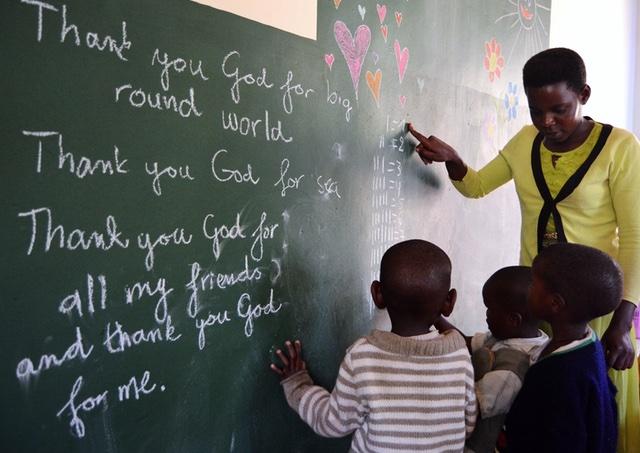 Thank you God for big
round world
Thank you God for sea
Thank you God for
all my friends
and thank you God
for me.
1 = 1
11 = 2
111 = 3